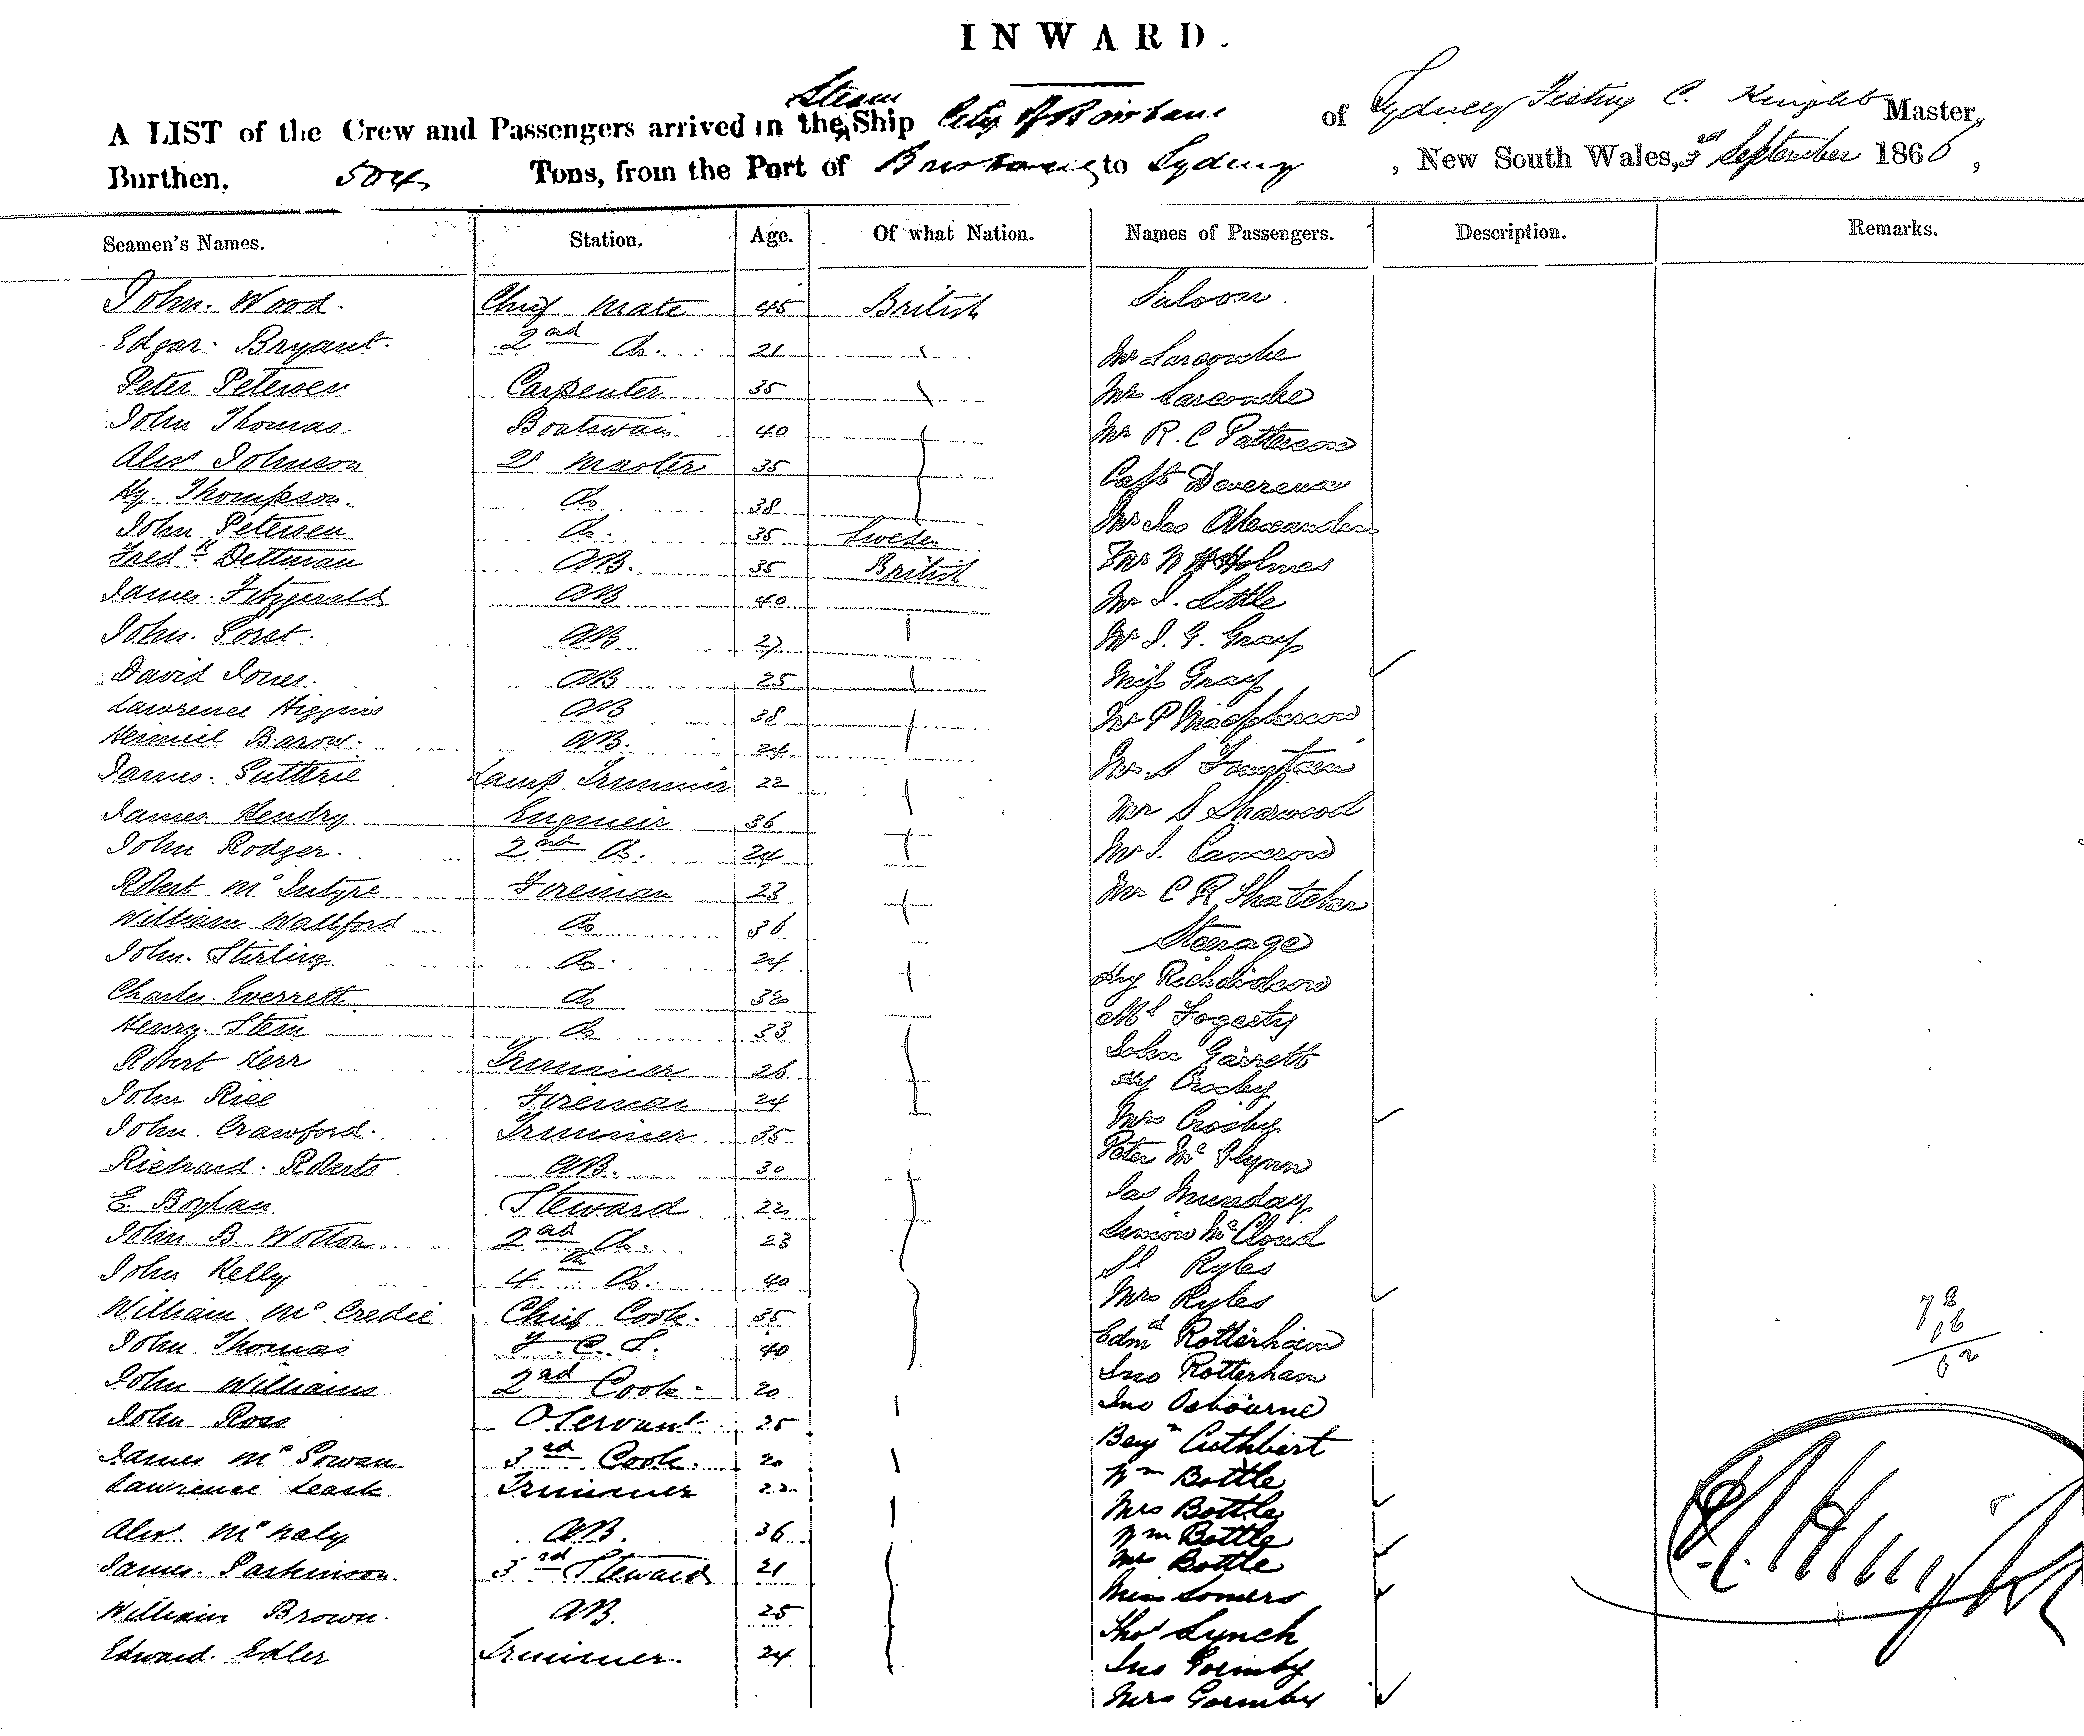 INWARD.
Steam
A LIST of the Crew and Passengers arrived in the Ship City of Brisbane of Sydney C. Knight Master,
Burthen, 504 Tons, from the Port of Brisbane to Sydney, New South Wales, 3rd September 1866,
Seamen's Names. Station. Age. Of what Nation. Names of Passengers. Description. Remarks.
John Wood. Chief Mate 45 British Saloon.
Edgar Bryant. 2nd Do. 21 Mr Larcombe
Peter Petersen Carpenter 35 Mrs Larcombe
John Thomas Boatswain 40 Mr R. C Patterson
Alexr Johnson 2r Master 35 Capt Devereux
Hy Thompson. Do 38 Mr Jas Alexander
John Petersen Do. 35 Sweden Mr W H Holmes
Fredk Dettman AB. 35 British Mr J. Little
James Fitzgerald AB 40 Mr J. G. Gray
John AB 27 Miss Gray
David Jones. AB 25 Mr P Macpherson
Lawrence Higgins AB 38 Mr S Fountain
Barow. AB. 24 Mr S Sharwood
James Guthrie Lamp Trimmer 22 Mr J. Cameron
James Hendry Engineer 36 Mr C R Thatcher
John Rodger. 2nd Do. 24 Steerage
Robert McIntyre Foreman 23 Hy Richardson
William Wallford Do 36 Ml Fogerty
John Stirling Do. 24 John Garrett
Charles Everrett Do 32 Hy Crosby
Henry Stem Do 33 Mrs Crosby
Robert Kerr Trimmer 26 Peter McGlynn
John Rice Foreman 24 Jas Munday
John Crawford. Trimmer 35 Simon McCloud
Richard Roberts AB. 30 Sl Ryles
E Boylan Steward 22 Mrs Ryles
John B Wotton 2nd Do. 23 Edmd Rotterham
John Kelly 4th Do. 40 Jno Rotterham
William McCredie Chief Cook. 35 Jno Osbourne
John Thomas F. C. S. 40 Benjn Cuthbert
John Williams 2nd Cook. 20 Wm Bottle
John Ross O Servant 25 Mrs Bottle
James McGowan 3rd Cook. 20 Wm Bottle
Lawrence Leask Trimmer 22 Mrs Bottle
Alexr McNaly AB. 36 Miss Somers
James Parkinson. 3rd Steward 21 Thos Lynch
William Brown. AB. 25 Jno Gormby
Edward Edler Trimmer. 24 Mrs Gormby
C. Knight